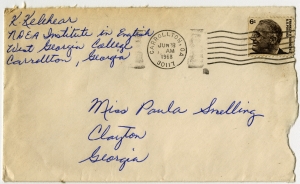 K. Kelehear
NDEA Institute in English
West Georgia College
Carrollton, Georgia
CARROLLTON, GA.
JUN 18
AM
1968
30117
6¢
Miss Paula Snelling
Clayton
Georgia